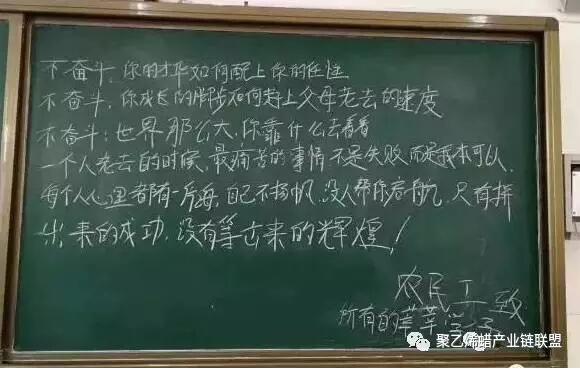 不奋斗,你的才华如何配上你的任性
不奋斗,你成长的脚步如何赶上父母老去的速度
不奋斗:世界那么大,你靠什么去看看
一个人老去的时候、最痛苦的事情不是失败而是我本可以、
每个人心里都有一片海,自己不扬帆、没人帮你启航、只有拼
出来的成功,没有等出来的辉煌!
农民工致
所有的莘莘学子
聚乙烯蜡产业链联盟